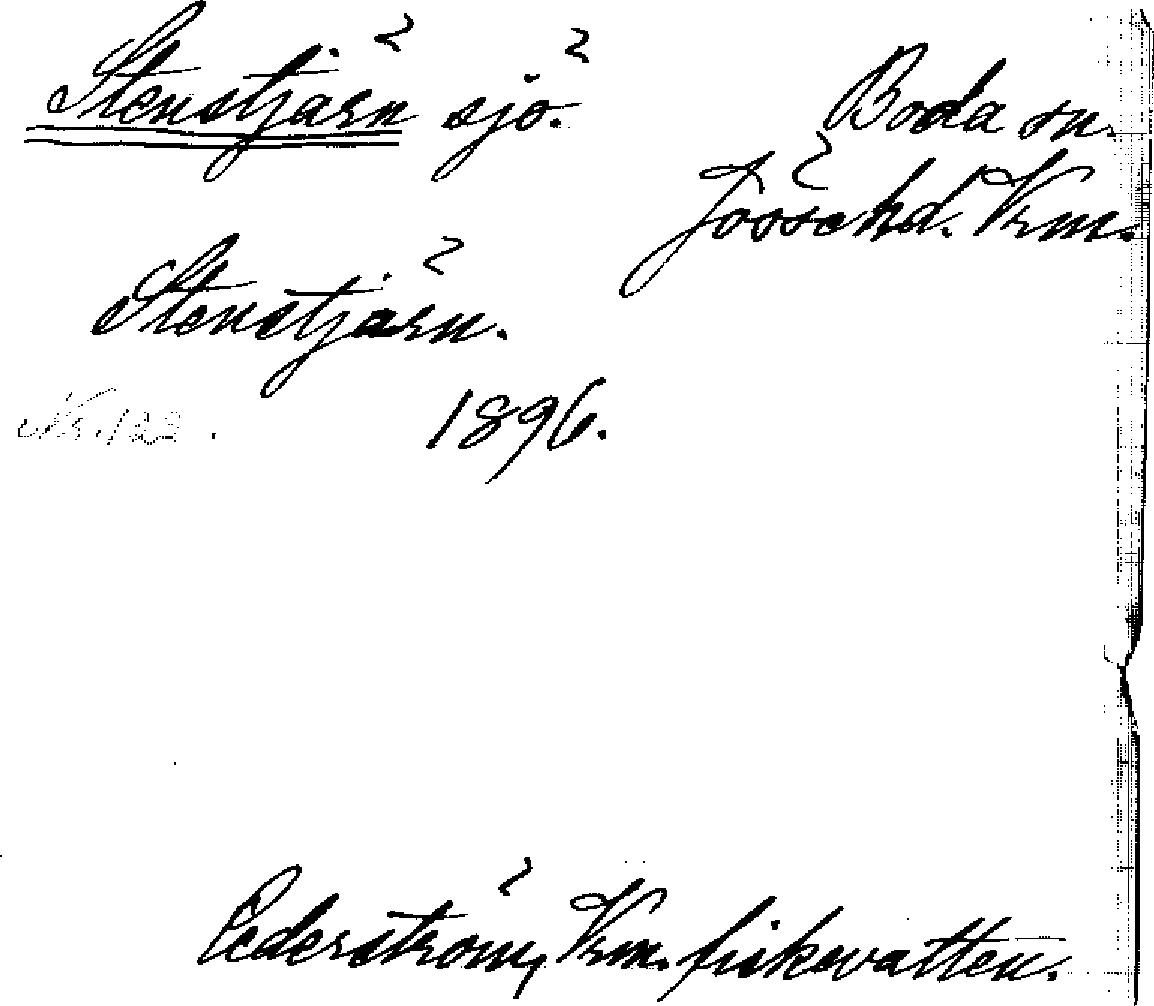 Stenstjärn sjö.
Boda sn.
Jösse hd. Vrm.
Stenstjärn.
Nr. 122.
1896.
Cederström, Vrm. fiskevatten.